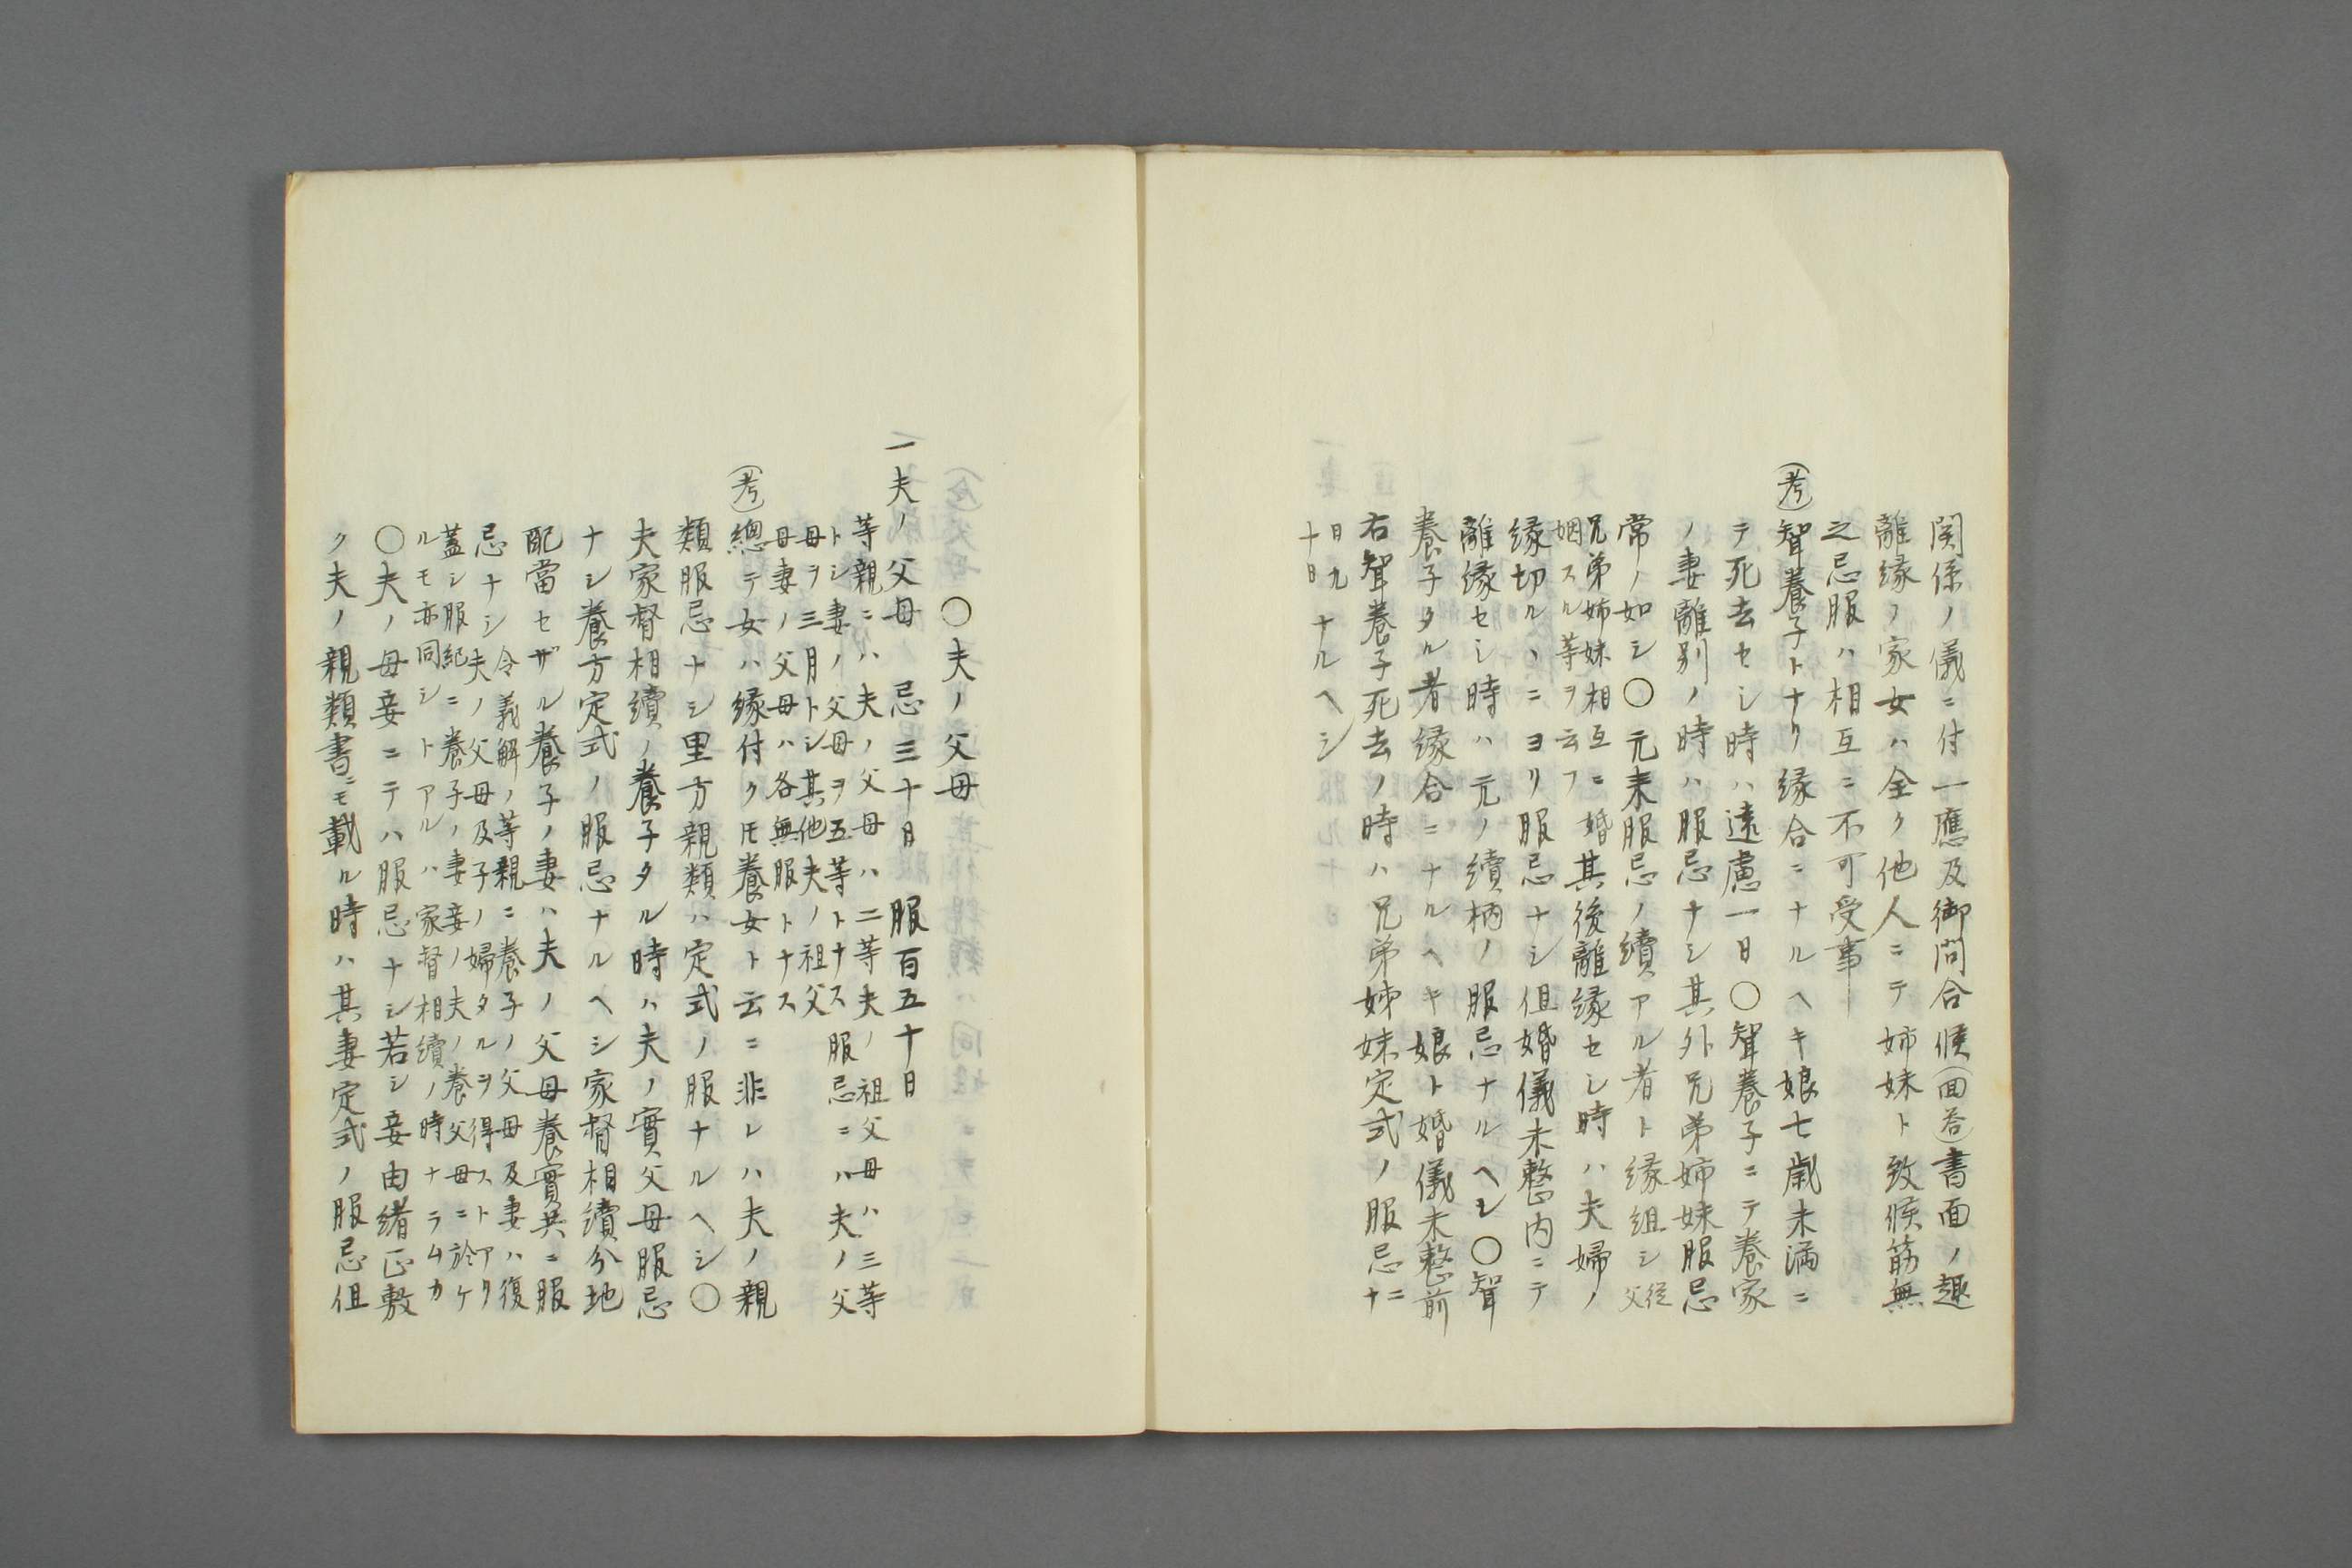 関係ノ儀ニ付一應及御問合候(回答)書面ノ趣
離縁ノ家女ハ全ク他人ニテ姉妹ト致候筋無
之忌服ハ相互ニ不可受事
(考)聟養子トナリ縁合ニナルヘキ娘七歳未満ニ
テ死去セシ時ハ遠慮一日〇聟養子ニテ養家
ノ妻離別ノ時ハ服忌ナシ其外兄弟姉妹服忌
常ノ如シ〇元来服忌ノ續アル者ト縁組シ従父
兄弟姉妹相互ニ婚
姻スル等ヲ云フ
其後離縁セシ時ハ夫婦ノ
縁切ルヽニヨリ服忌ナシ但婚儀未整内ニテ
離縁セシ時ハ元ノ續柄ノ服忌ナルヘシ〇聟
養子タル者縁合ニナルヘキ娘ト婚儀未整前
右聟養子死去ノ時ハ兄弟姉妹定式ノ服忌ナ二
日九
十日
ナルヘシ
〇夫ノ父母
一夫ノ父母 忌三十日 服百五十日
等親ニハ夫ノ父母ハ二等夫ノ祖父母ハ三等
トシ妻ノ父母ヲ五等トナス服忌ニハ夫ノ父
母ヲ三月トシ其他夫ノ祖父
母妻ノ父母ハ各無服トナス
(考)總テ女ハ縁付クモ養女ト云ニ非レハ夫ノ親
類服忌ナシ里方親類ハ定式ノ服ナルヘシ〇
夫家督相續ノ養子タル時ハ夫ノ實父母服忌
ナシ養方定式ノ服忌ナルヘシ家督相續分地
配當セザル養子ノ妻ハ夫ノ父母養實共ニ服
忌ナシ
令義解ノ等親ニ養子ノ父母及妻ハ復
夫ノ父母及子ノ婦タルヲ得ストアリ
蓋シ服紀ニ養子ノ妻妾ノ夫ノ養父母ニ於ケ
ルモ亦同シトアルハ家督相續ノ時ナラムカ
〇夫ノ母妾ニテハ服忌ナシ若シ妾由緒正敷
ク夫ノ親類書ニモ載ル時ハ其妻定式ノ服忌但